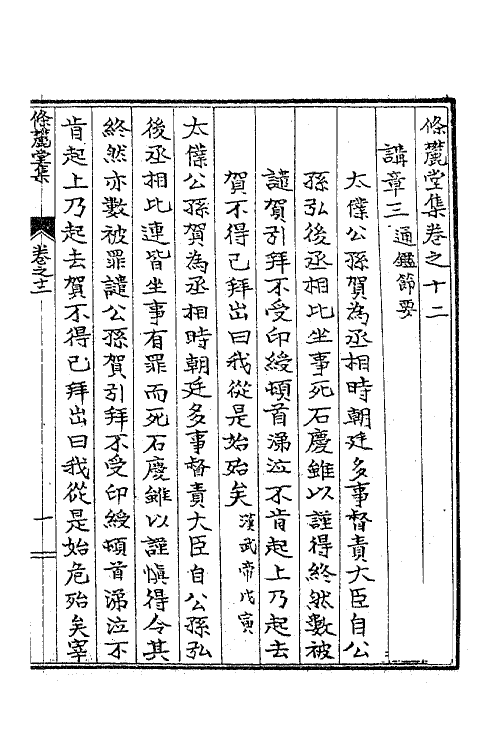 條麓堂集卷之十二
講章三通鑑節要
太僕公孫賀為丞相時朝廷多事督責大臣自公
孫弘後丞相比坐事死石慶雖以謹得終然數被
譴賀引拜不受印綬頓首涕泣不肯起上乃起去
賀不得已拜出曰我從是始殆矣漢武帝戊寅
太僕公孫賀為丞相時朝廷多事督責大臣自公孫弘
後丞相比連皆坐事有罪而死石慶雖以謹慎得令其
終然亦數被罪譴公孫賀引拜不受印綬頓首涕泣不
肯起上乃起去賀不得已拜出曰我從是始危殆矣宰
條麓堂集
卷之十二
一